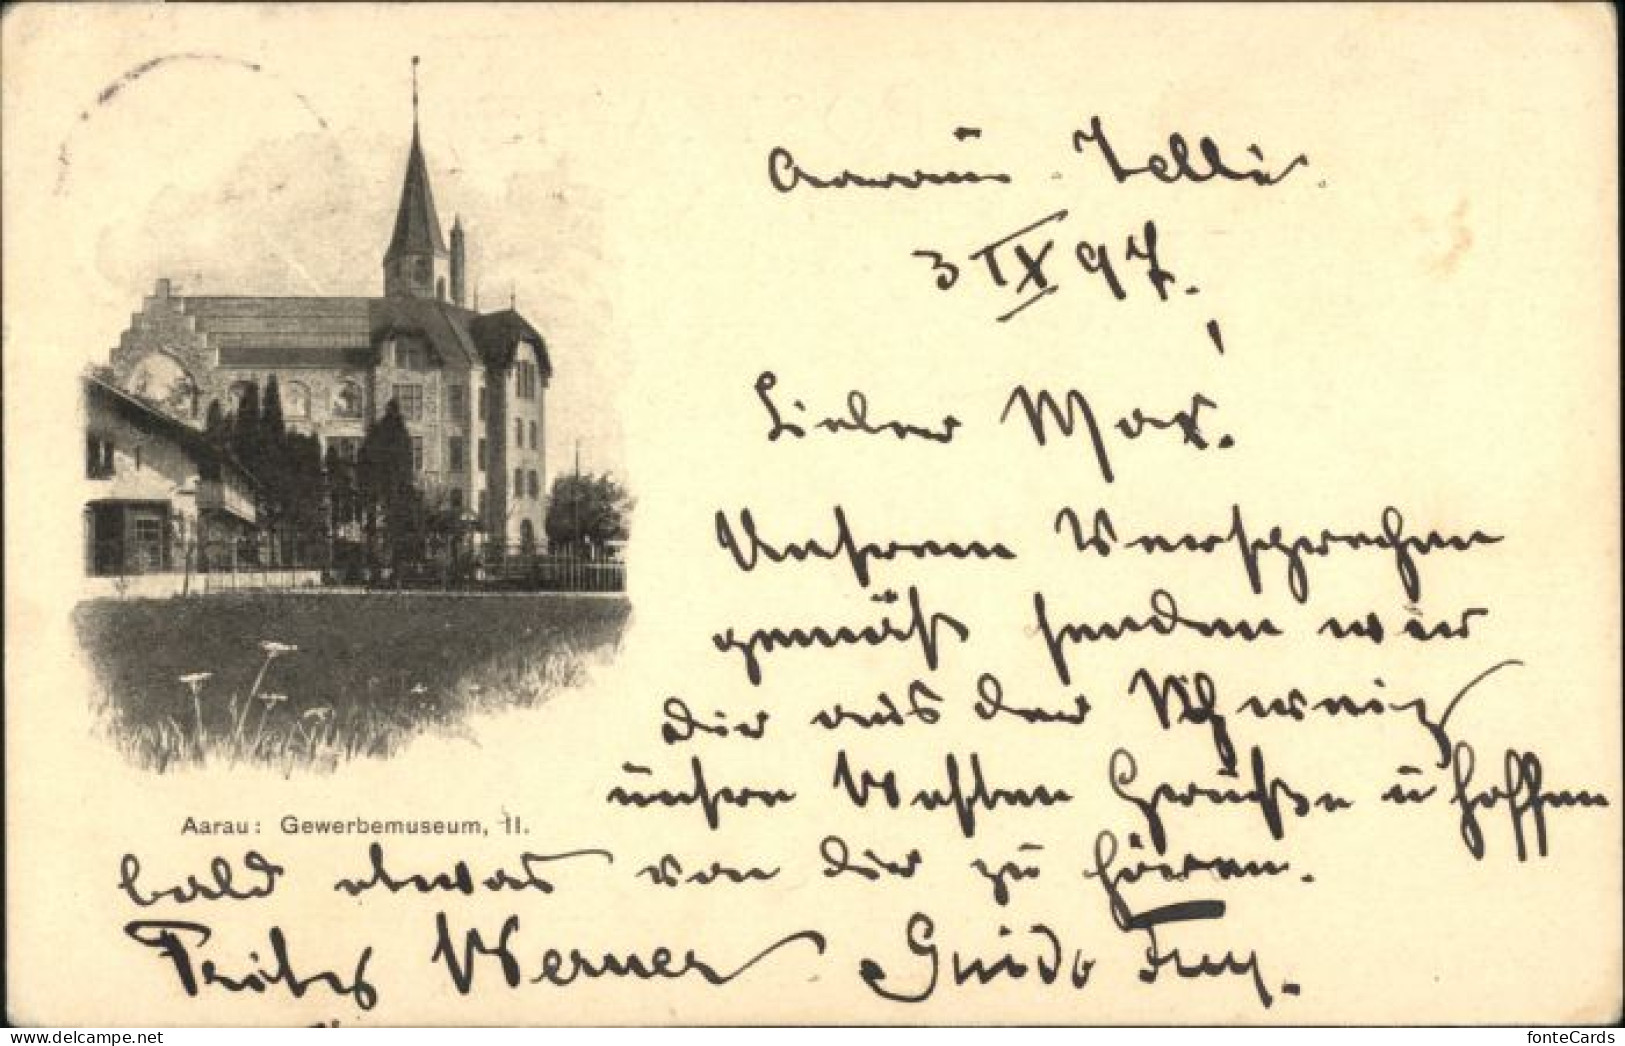 Aarau. Telli.
3 IX 97.
Lieber Max.
Unserem Versprechen
gemäß senden wir
dir aus der Schweiz
unsere besten Grüße u hoffen
Aarau: Gewerbemuseum, II.
bald etwas von dir zu hören.
Werner Guido Frey.
fonteCards
PicClick Exclusive